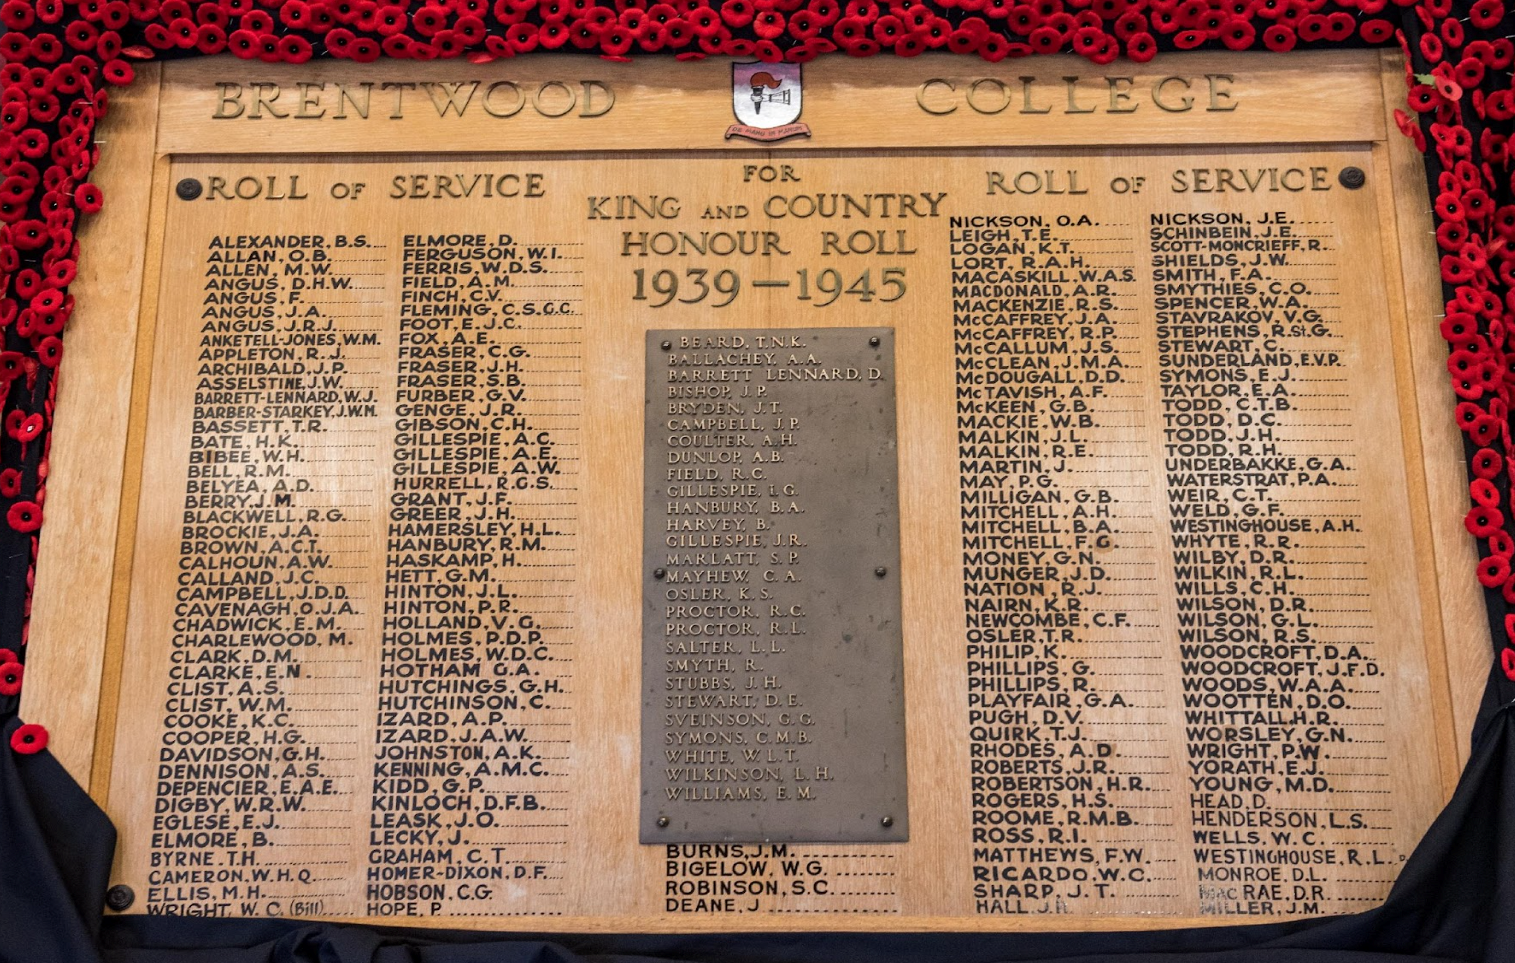 BRENTWOOD COLLEGE
DE MANU IN MANUM
ROLL OF SERVICE
ALEXANDER, B.S.
ALLAN, O.B.
ALLEN, M.W.
ANGUS, D.H.W.
ANGUS, F.
ANGUS, J.A.
ANGUS, J.R.J.
ANKETELL-JONES, W.M.
APPLETON, R.J.
ARCHIBALD, J.P.
ASSELSTINE, J.W.
BARRETT-LENNARD, W.J.
BARBER-STARKEY, J.W.M.
BASSETT, T.R.
BATE, H.K.
BIBEE, W.H.
BELL, R.M.
BELYEA, A.D.
BERRY, J.M.
BLACKWELL, R.G.
BROCKIE, J.A.
BROWN, A.C.T.
CALHOUN, A.W.
CALLAND, J.C.
CAMPBELL, J.D.D.
CAVENAGH, O.J.A.
CHADWICK, E.M.
CHARLEWOOD, M.
CLARK, D.M.
CLARKE, E.N.
CLIST, A.S.
CLIST, W.M.
COOKE, K.C.
COOPER, H.G.
DAVIDSON, G.H.
DENNISON, A.S.
DEPENCIER, E.A.E.
DIGBY, W.R.W.
EGLESE, E.J.
ELMORE, B.
BYRNE, T.H.
CAMERON, W.H.Q.
ELLIS, M.H.
WRIGHT, W. C. (Bill)
ELMORE, D.
FERGUSON, W.I.
FERRIS, W.D.S.
FIELD, A.M.
FINCH, C.V.
FLEMING, C.S.G.C.
FOOT, E.J.C.
FOX, A.E.
FRASER, C.G.
FRASER, J.H.
FRASER, S.B.
FURBER, G.V.
GENGE, J.R.
GIBSON, C.H.
GILLESPIE, A.C.
GILLESPIE, A.E.
GILLESPIE, A.W.
HURRELL, R.G.S.
GRANT, J.F.
GREER, J.H.
HAMERSLEY, H.L.
HANBURY, R.M.
HASKAMP, H.
HETT, G.M.
HINTON, J.L.
HINTON, P.R.
HOLLAND, V.G.
HOLMES, P.D.P.
HOLMES, W.D.C.
HOTHAM G.A.
HUTCHINGS, G.H.
HUTCHINSON, C.
IZARD, A.P.
IZARD, J.A.W.
JOHNSTON, A.K.
KENNING, A.M.C.
KIDD, G.P.
KINLOCH, D.F.B.
LEASK, J.O.
LECKY, J.
GRAHAM, C.T.
HOMER-DIXON, D.F.
HOBSON, C.G.
HOPE, P.
FOR
KING AND COUNTRY
HONOUR ROLL
1939-1945
BEARD, T.N.K.
BALLACHEY, A.A.
BARRETT LENNARD, D.
BISHOP, J.P.
BRYDEN, J.T.
CAMPBELL, J.P.
COULTER, A.H.
DUNLOP, A.B.
FIELD, R.C.
GILLESPIE, I.G.
HANBURY, B.A.
HARVEY, B.
GILLESPIE, J.R.
MARLATT, S.P.
MAYHEW, C.A.
OSLER, K.S.
PROCTOR, R.C.
PROCTOR, R.L.
SALTER, L.L.
SMYTH, R.
STUBBS, J.H.
STEWART, D.E.
SVEINSON, G.G.
SYMONS, C.M.B.
WHITE, W.L.T.
WILKINSON, L.H.
WILLIAMS, E.M.
BURNS, J.M.
BIGELOW, W.G.
ROBINSON, S.C.
DEANE, J
ROLL OF SERVICE
NICKSON, O.A.
LEIGH, T.E.
LOGAN, K.T.
LORT, R.A.H.
MACASKILL, W.A.S.
MACDONALD, A.R.
MACKENZIE, R.S.
McCAFFREY, J.A.
McCAFFREY, R.P.
McCALLUM, J.S.
McCLEAN, J.M.A.
McDOUGALL, D.D.
McTAVISH, A.F.
McKEEN, G.B.
MACKIE, W.B.
MALKIN, J.L.
MALKIN, R.E.
MARTIN, J.
MAY, P.G.
MILLIGAN, G.B.
MITCHELL, A.H.
MITCHELL, B.A.
MITCHELL, F.G.
MONEY, G.N.
MUNGER, J.D.
NATION, R.J.
NAIRN, K.R.
NEWCOMBE, C.F.
OSLER, T.R.
PHILIP, K.
PHILLIPS, G.
PHILLIPS, R.
PLAYFAIR, G.A.
PUGH, D.V.
QUIRK, T.J.
RHODES, A.D.
ROBERTS, J.R.
ROBERTSON, H.R.
ROGERS, H.S.
ROOME, R.M.B.
ROSS, R.I.
MATTHEWS, F.W.
RICARDO, W.C.
SHARP, J.T.
HALL, J.R.
NICKSON, J.E.
SCHINBEIN, J.E.
SCOTT-MONCRIEFF, R.
SHIELDS, J.W.
SMITH, F.A.
SMYTHIES, C.O.
SPENCER, W.A.
STAVRAKOV, V.G.
STEPHENS, R.St.G.
STEWART, C.
SUNDERLAND, E.V.P.
SYMONS, E.J.
TAYLOR, E.A.
TODD, C.T.B.
TODD, D.C.
TODD, J.H.
TODD, R.H.
UNDERBAKKE, G.A.
WATERSTRAT, P.A.
WEIR, C.T.
WELD, G.F.
WESTINGHOUSE, A.H.
WHYTE, R.R.
WILBY, D.R.
WILKIN, R.L.
WILLS, C.H.
WILSON, D.R.
WILSON, G.L.
WILSON, R.S.
WOODCROFT, D.A.
WOODCROFT, J.F.D.
WOODS, W.A.A.
WOOTTEN, D.O.
WHITTALL, H.R.
WORSLEY, G.N.
WRIGHT, P.W.
YORATH, E.J.
YOUNG, M.D.
HEAD, D.
HENDERSON, L.S.
WELLS, W.C.
WESTINGHOUSE, R.L.
MONROE, D.L.
MAC RAE, D.R.
MILLER, J.M.